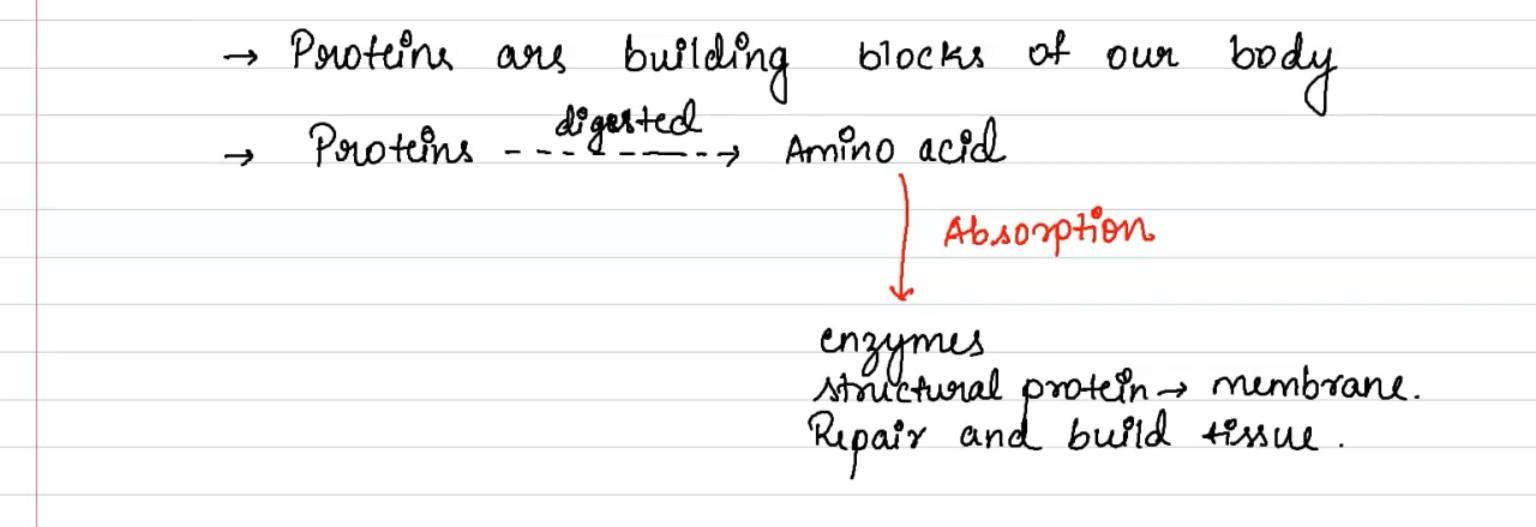 → Proteins are building blocks of our body
digested
→ Proteins ---------→ Amino acid
Absorption
enzymes
structural protein → membrane.
Repair and build tissue.